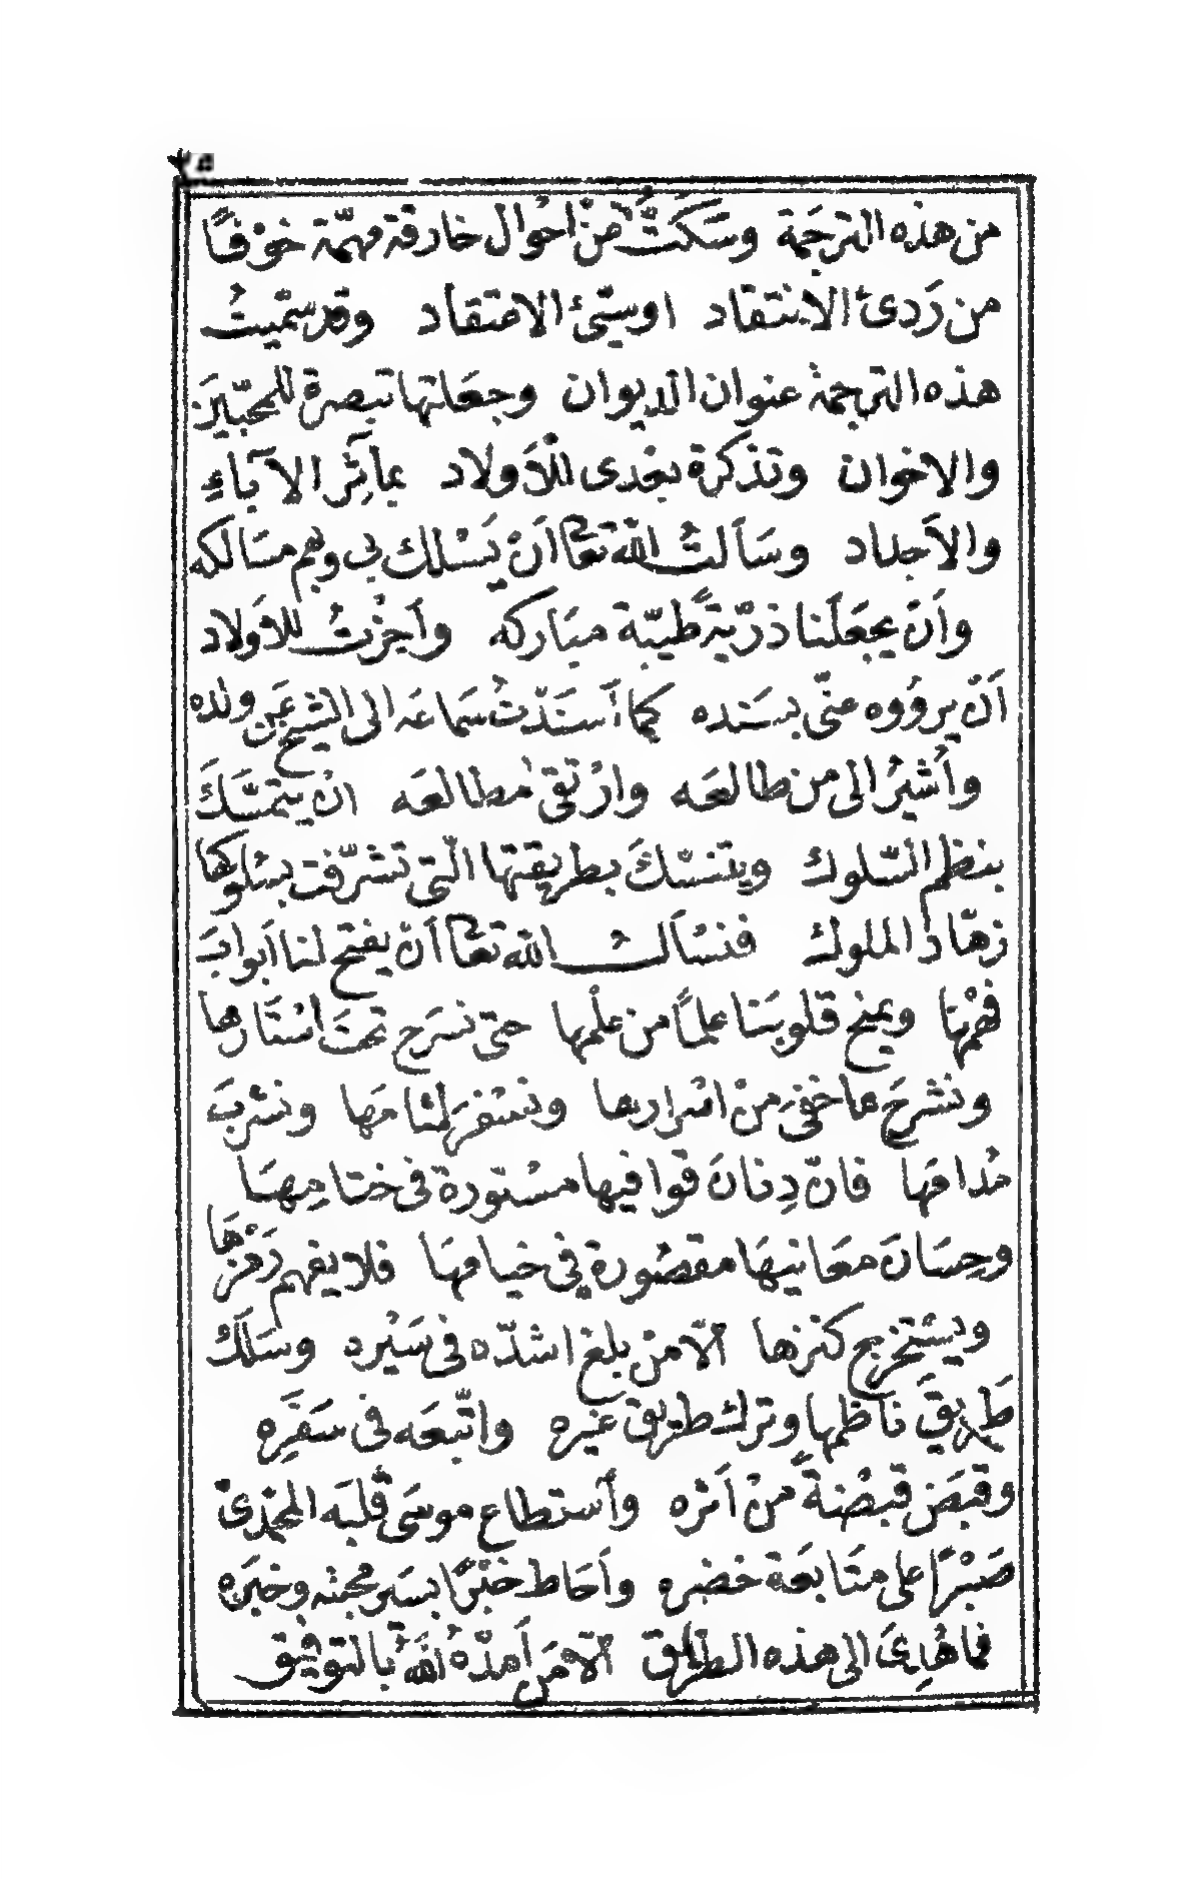 ٢٥
من هذه الترجَمة وسَكَتُّ من احْوال خارقة مهمّة خوْفًا
من رَدِیٔ الانتقاد اوسیّیٔ الاعتقاد وقد سمّيتُ
هذه الترجمة عنوان الديوان وجعَلتها تبصرة للمحبّين
والاخوان وتذكرة تجدى للأولاد بمآثِر الآباءِ
والأجداد وسَألتُ الله تعَا أنْ يَسْلك بى وبهم مسَالكه
وأن يجعَلَنا ذرّيةً طيّبة مبَاركه وأجزْتُ للأولاد
أنْ يرووه عنّى بسَنده كما أسنَدْتُ سَماعَه الى الشيخ عَن ولده
وأشيرُ الى من طالعَه وارْتقى مطالعَه انْ يتمسَّكَ
بنظم السّلوك ويتنسْكَ بطريقتها الّتى تشرّفت بسُلوكها
زهّاد الملوك فنسْألُ الله تعَا أنْ يفتح لنا أبوابَ
فهْمها ويمنح قلوبَنا علمًا من علْمها حتى نسرَح تحتَ اسْتَارها
ونشرحَ ما خفىَ منْ اسْرارها ونسْفرَ لثامَها ونشربَ
مُدامَها فانّ دِنانَ قوافيها مسْتورة فى ختامِهَا
وحِسَانَ معَانيهَا مقصُورة فى خيامهَا فلا يفهم رَمْزهَا
ويسْتخرج كنزها الّا من بلغ اشدّه فى سَيْره وسَلَكَ
طَريقَ ناظمها وترك طريق غيره واتّبعَه فى سَفَرِه
وقبَض قبضْةً منْ أثره وأستطاع موسَى قلبَه المحمّدىّ
صَبْرًا على متَابعَة خضره وأحَاط خبْرًا بسَر مجمله وخبَره
فما هُدِىَ الى هذه الطرائق الّا مَن أمدّهُ اللهُ بالتوفيق